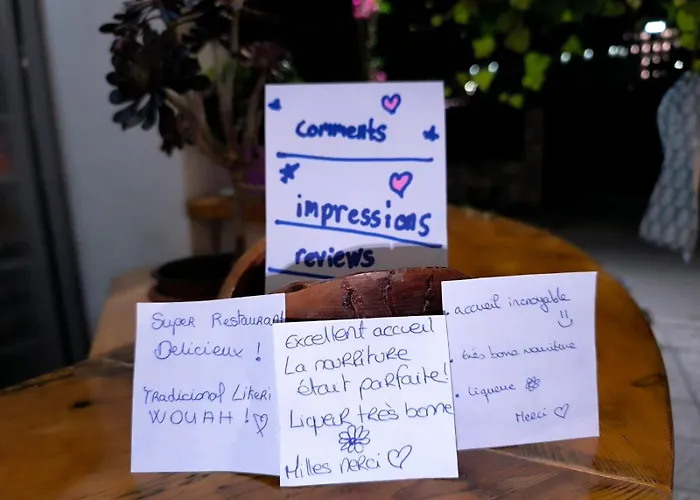 comments
impressions
reviews
Super Restaurant
Delicieux !
Tradicional Likeri
WOUAH !
Excellent accueil
La nourriture
était parfaite!
Liqueur très bonne
Milles merci
accueil incroyable
très bonne nourriture
Liqueur
Merci